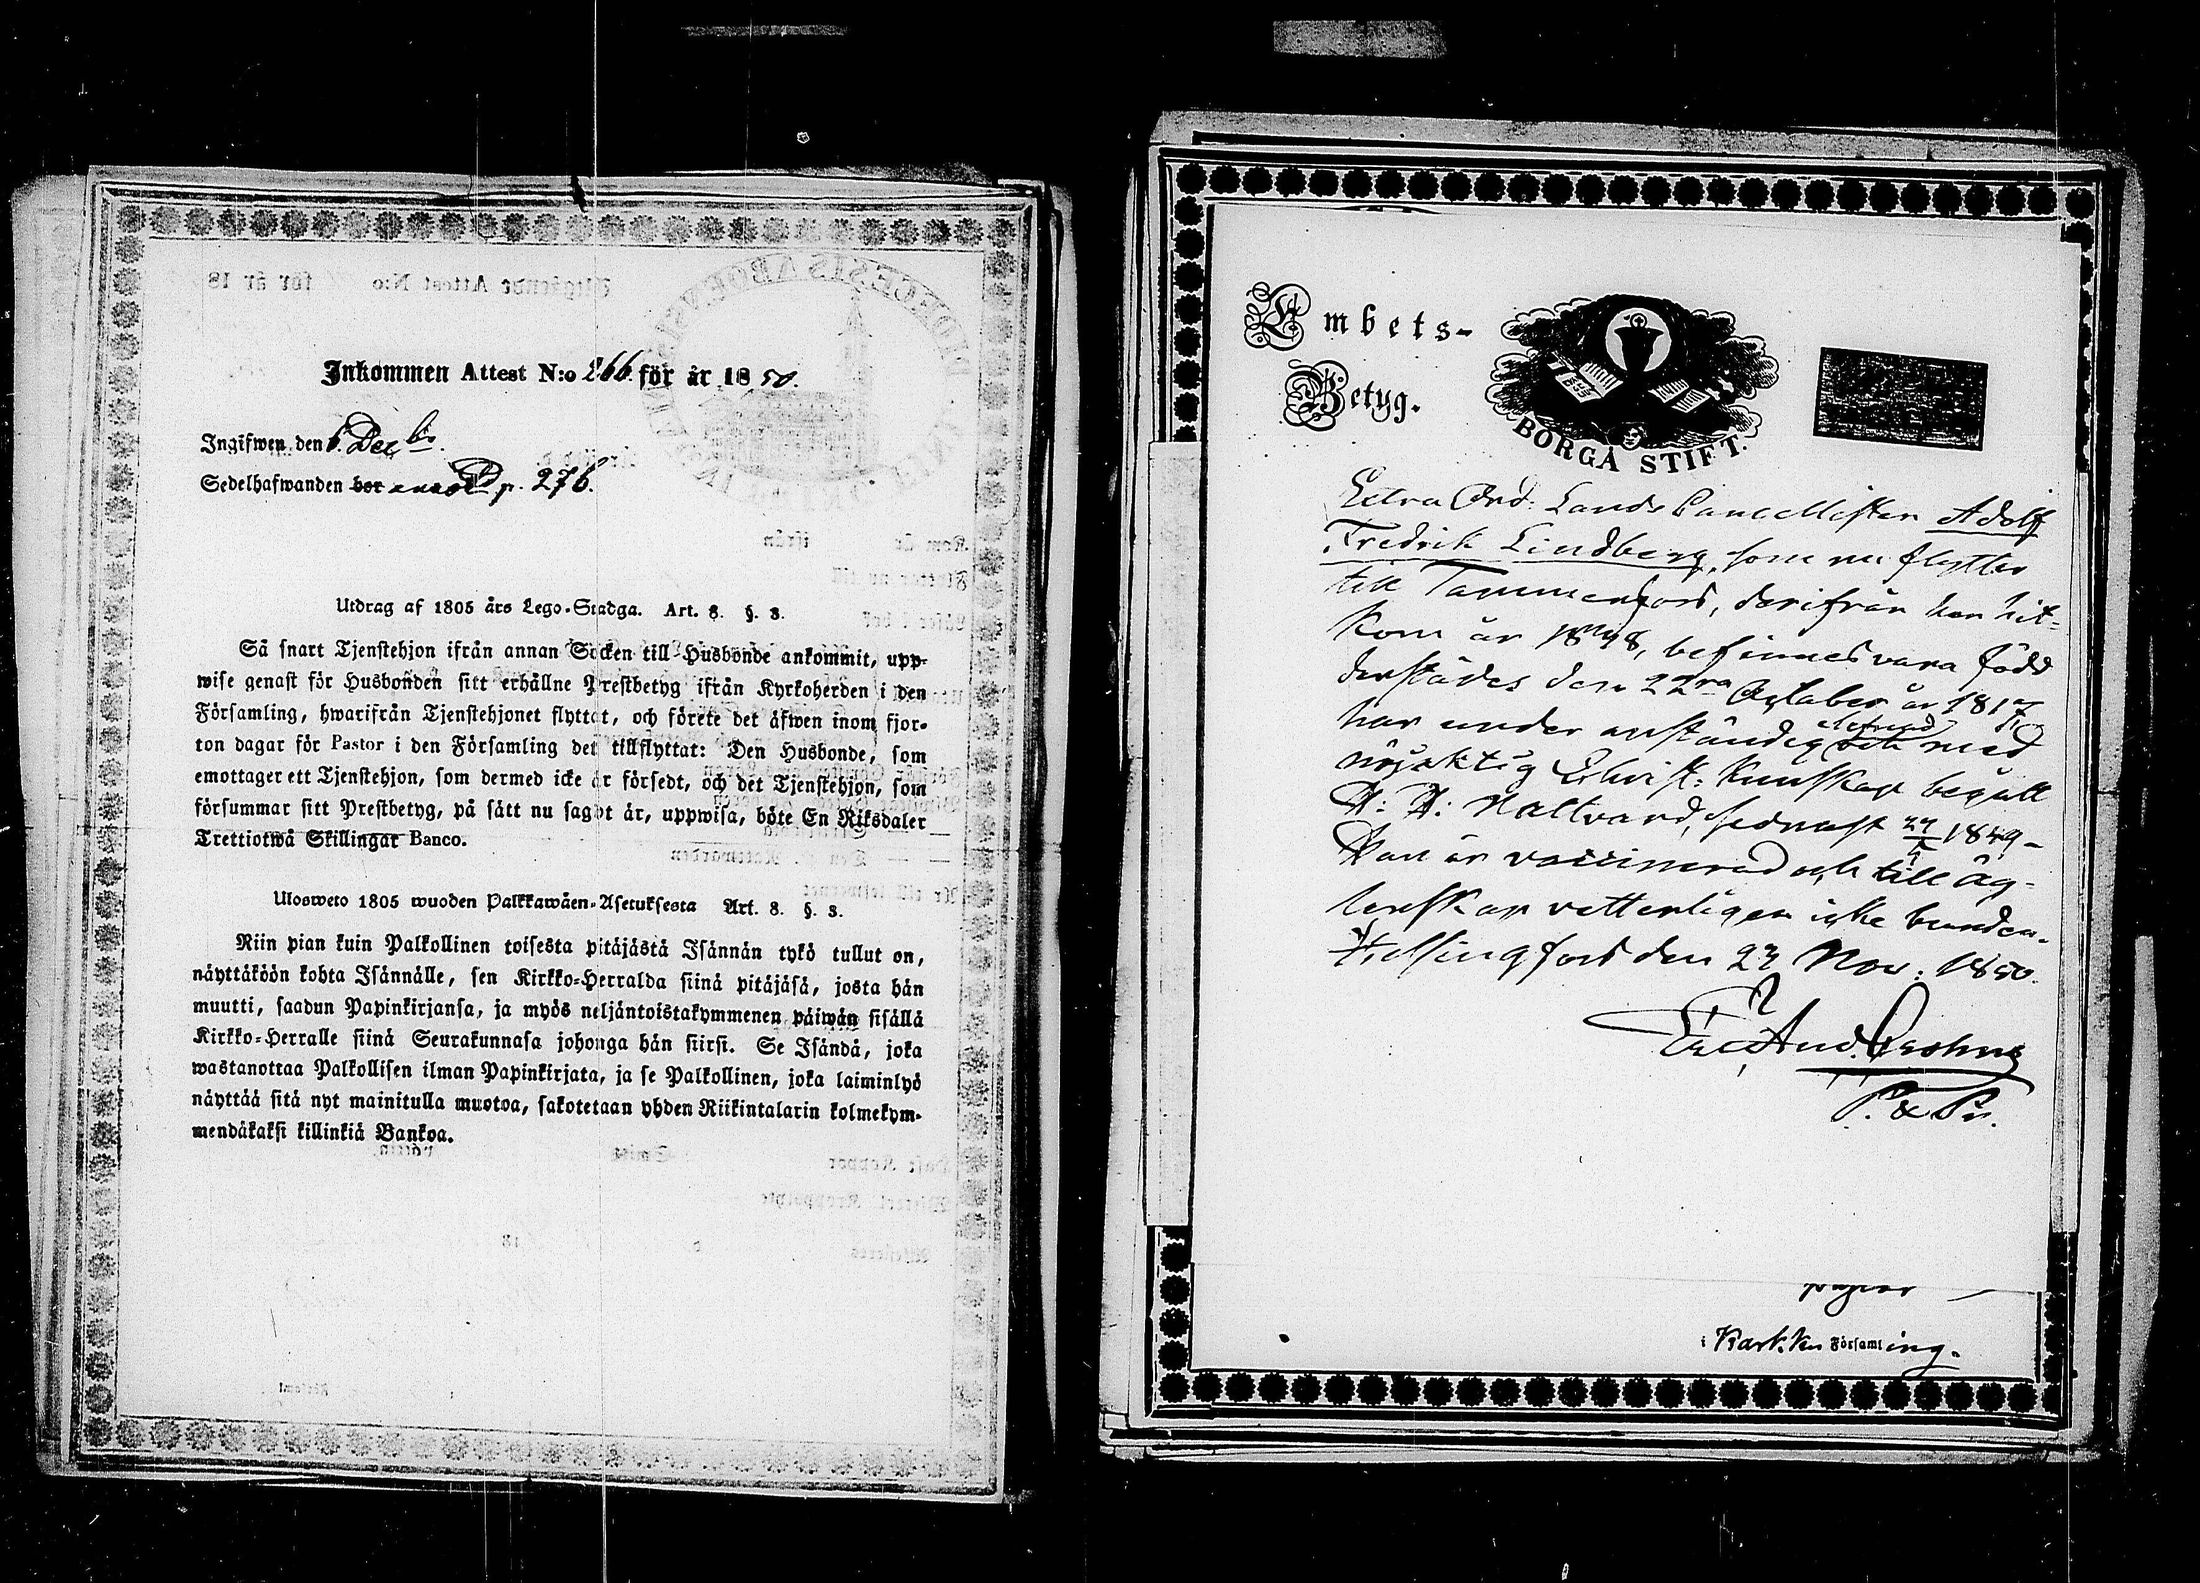 Inkommen Attest N:o 266. för år 1850.
Ingifwen den 6. Dec br.
Sedelhafwanden bor p. 276.
Utdrag af 1805 års Lego-Stadga. Art. 8. §. 3.
Så snart Tjenstehjon ifrån annan Socken till Husbonde ankommit, upp-
wise genast för Husbonden sitt erhållne Prestbetyg ifrån Kyrkoherden i den
Församling, hwarifrån Tjenstehjonet flyttat, och förete det äfwen inom fjor-
ton dagar för Pastor i den Församling det tillflyttat: Den Husbonde, som
emottager ett Tjenstehjon, som dermed icke är försedt, och det Tjenstehjon, som
försummar sitt Prestbetyg, på sätt nu sagdt är, uppwisa, böte En Riksdaler
Trettiotwå Skillingar Banco.
Ulosweto 1805 wuoden Palkkawäen-Asetuksesta Art. 8. §. 3.
Niin pian kuin Palkollinen toisesta pitäjästä Isännän tykö tullut on,
näyttäköön kohta Isännälle, sen Kirkko-Herralda siinä pitäjäsä, josta hän
muutti, saadun Papinkirjansa, ja myös neljäntoistakymmenen päiwän sisällä
Kirkko-Herralle siinä Seurakunnasa johonga hän siirsi. Se Isändä, joka
wastanottaa Palkollisen ilman Papinkirjata, ja se Palkollinen, joka laiminlyö
näyttää sitä nyt mainitulla muotoa, sakotetaan yhden Riikintalarin kolmekym-
mendäkaksi killinkiä Bankoa.
Embets-
Betyg.
BORGÅ STIFT.
Extra Ord: Lands Cancellisten Adolf
Fredrik Lindberg, som nu flyttar
till Tammerfors, derifrån han hit-
kom år 1848, befinnes vara född
derstädes den 22ra October år 1817
har under anständig lefnad och med
nöjaktig Christ: kunskap begått
H. H. Nattvard, sednast 29/4 1849 -
Han är vaccinerad och till äg-
tenskap vetterligen icke bunden.
Helsingfors den 27 Nov: 1850.
And. Crohns
P. & Pr.
i Karkku Församling.